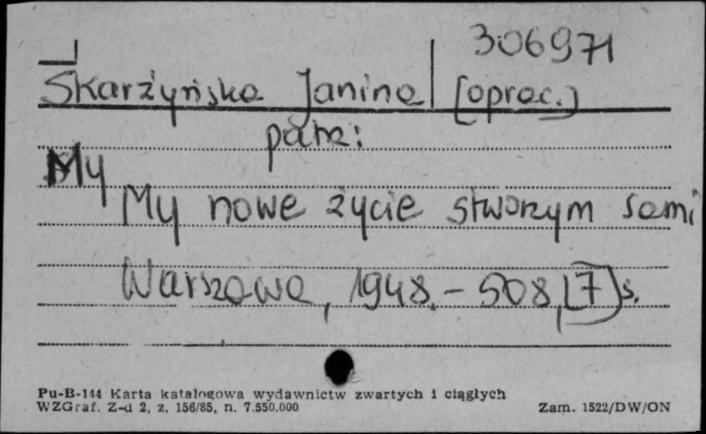 306971
Skarżyńska Janina [oprac.]
patrz:
My
My nowe życie stworzym sami
Warszawa, 1948. - 508, [7] s.
Pu-B-144 Karta katalogowa wydawnictw zwartych i ciągłych
WZGraf. Z-d 2, z. 156/85, n. 7.550.000
Zam. 1522/DW/ON